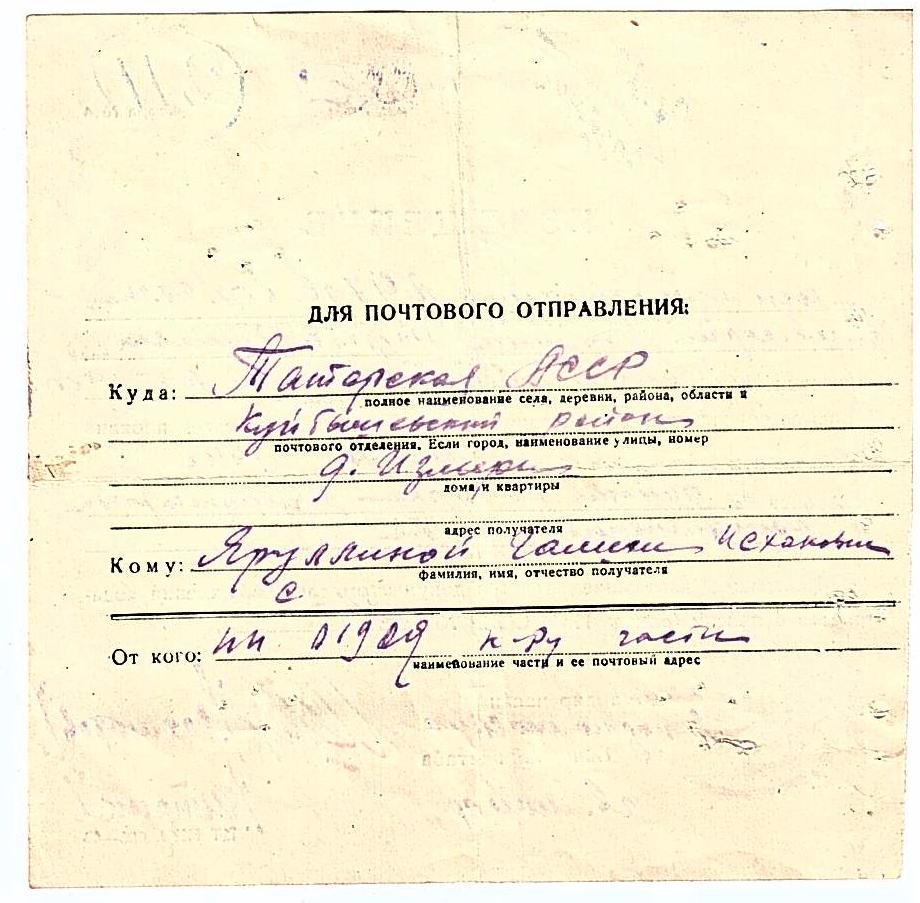 ДЛЯ ПОЧТОВОГО ОТПРАВЛЕНИЯ:
Куда: Татарская АССР
полное наименование села, деревни, района, области и
Куйбышевский район
почтового отделения. Если город, наименование улицы, номер
д. Измери
дома, и квартиры
адрес получателя
Кому: Яруллиной Исхаковне
фамилия, имя, отчество получателя
От кого: пп 01909 к-ру части
наименование части и ее почтовый адрес